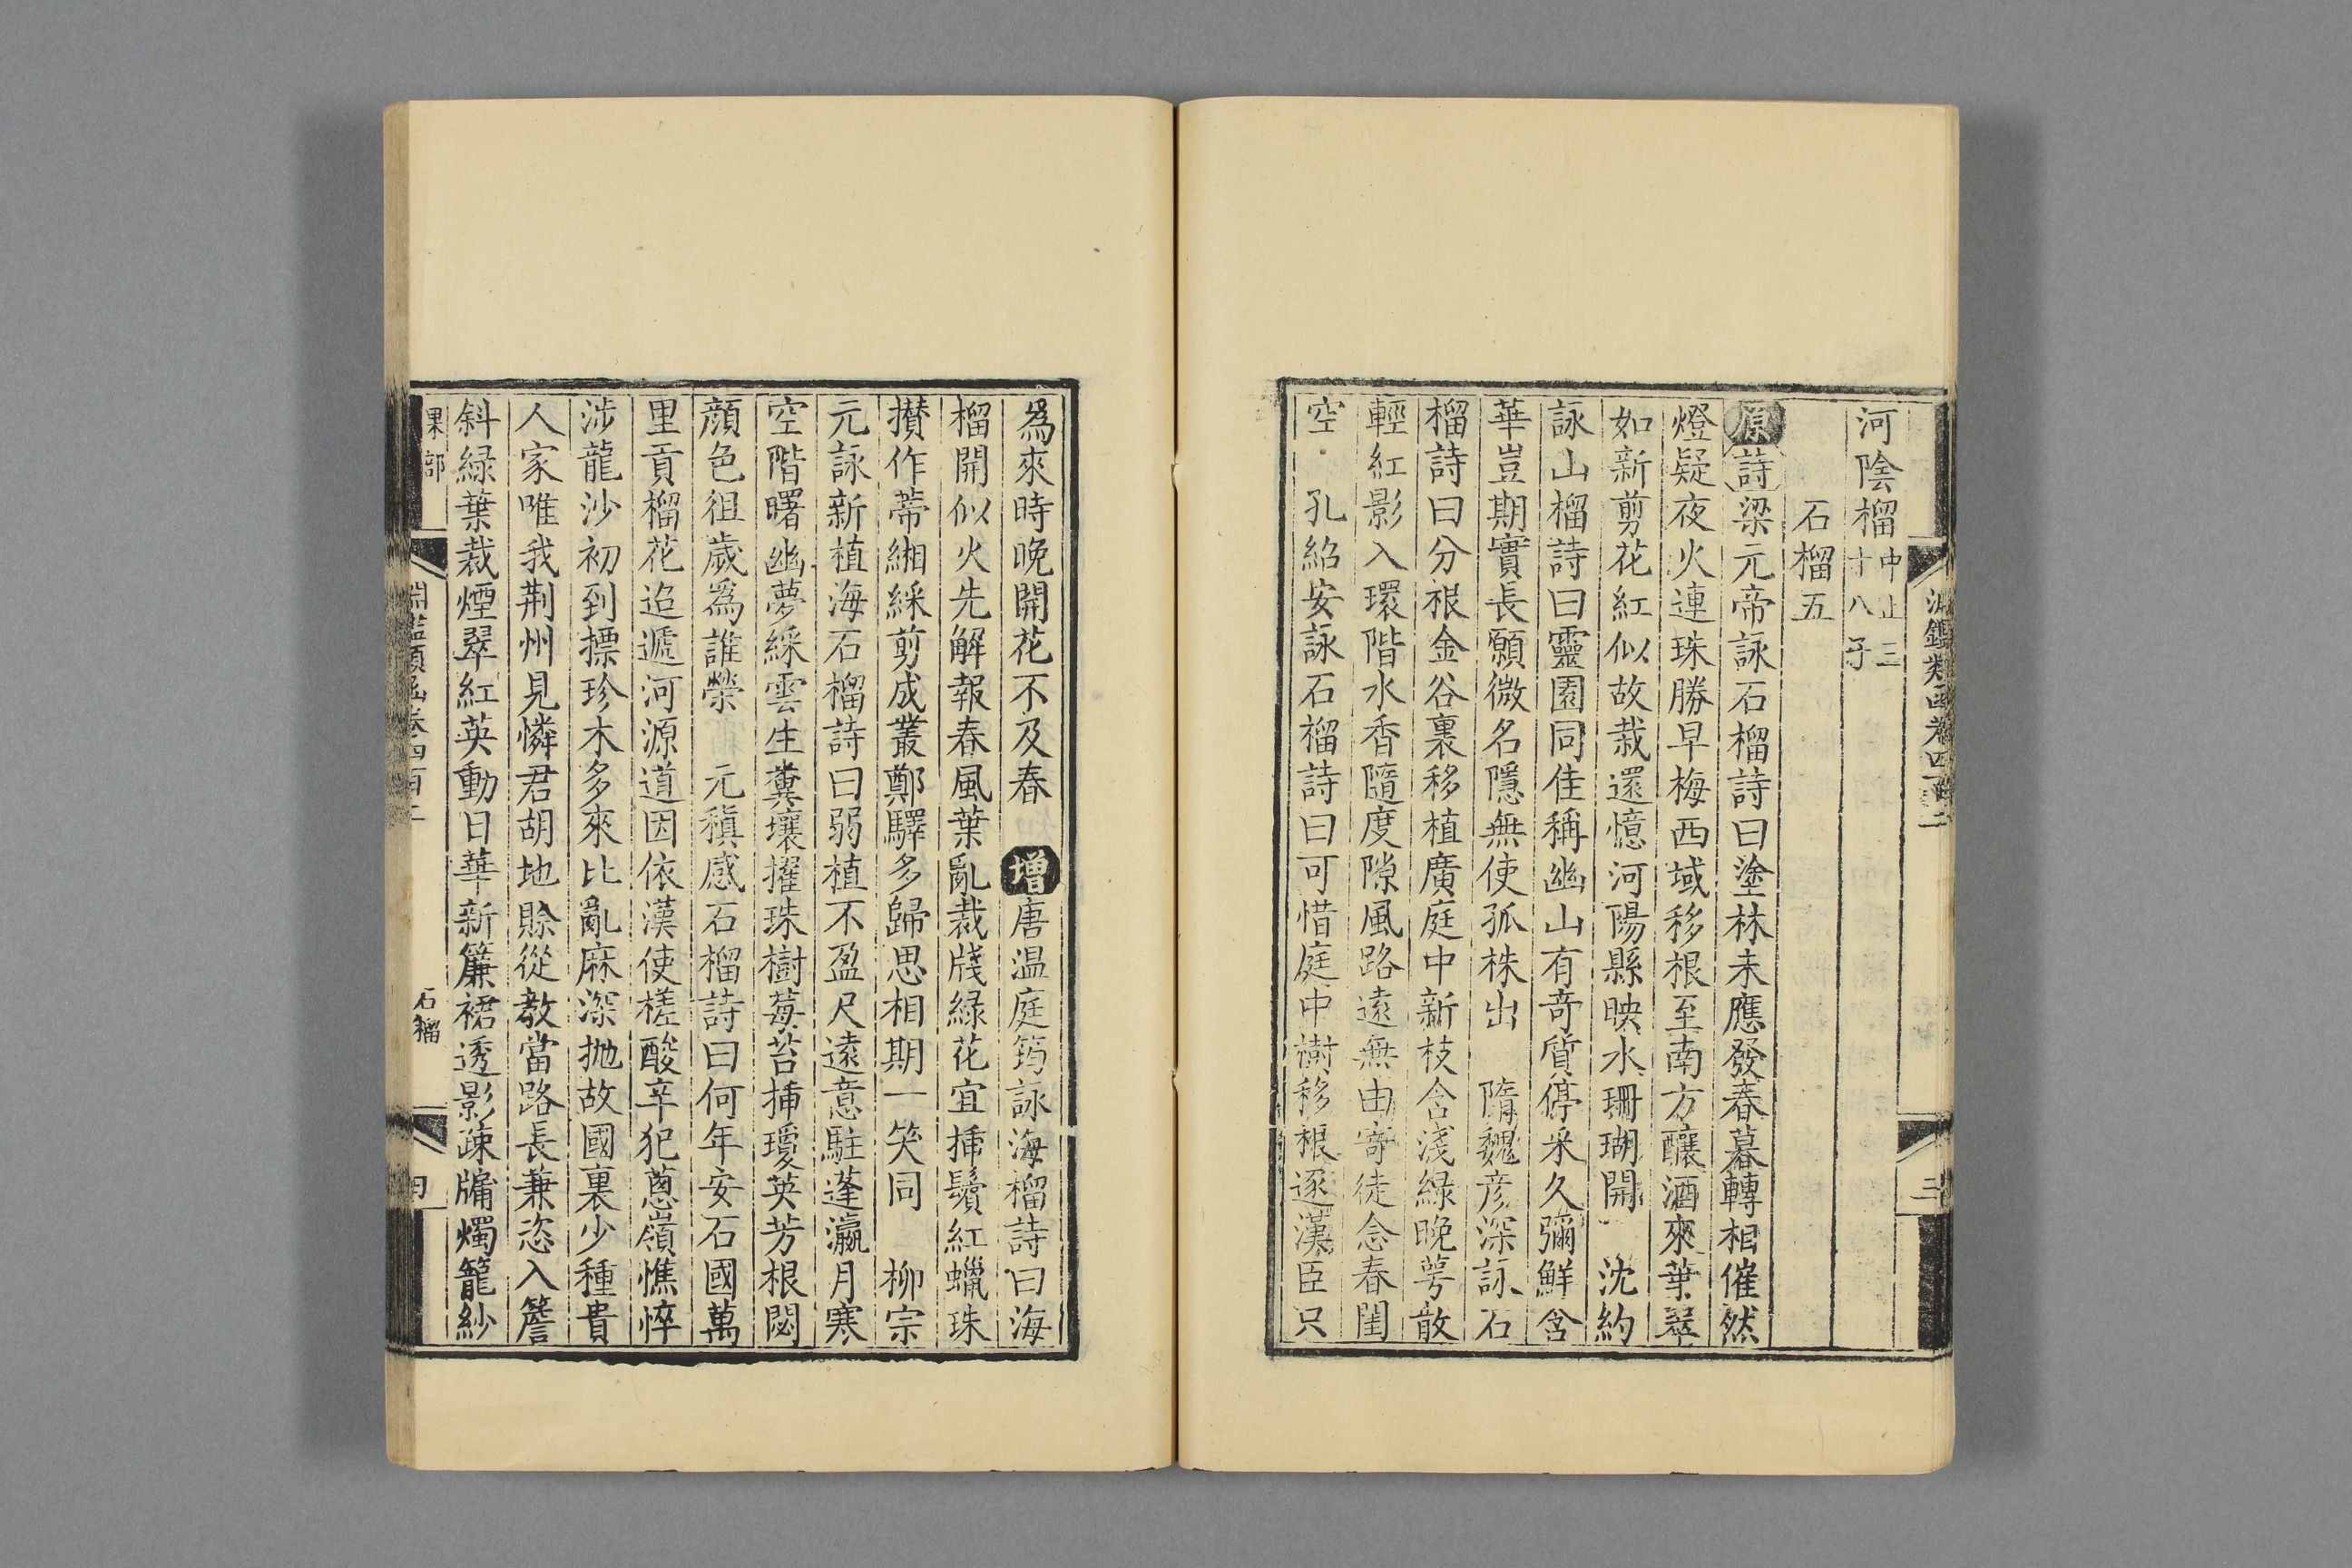 淵鑑類函卷四百二
三
河陰榴中止三十八子
石榴五
原詩梁元帝詠石榴詩曰塗林未應發春暮轉相催然
燈疑夜火連珠勝早梅西域移根至南方釀酒來葉翠
如新剪花紅似故栽還憶河陽縣映水珊瑚開 沈約
詠山榴詩曰靈園同佳稱幽山有奇質停采久彌鮮含
華豈期實長願微名隱無使孤株出 隋魏彦深詠石
榴詩曰分根金谷裏移植廣庭中新枝含淺緑晚萼散
輕紅影入環階水香隨度隙風路遠無由寄徒念春閨
空 孔紹安詠石榴詩曰可惜庭中樹移根逐漢臣只
爲來時晚開花不及春 增唐温庭筠詠海榴詩曰海
榴開似火先解報春風葉亂裁牋緑花宜揷鬢紅蠟珠
攅作蒂緗綵剪成叢鄭驛多歸思相期一笑同 柳宗
元詠新植海石榴詩曰弱植不盈尺遠意駐蓬瀛月寒
空階曙幽夢綵雲生糞壤擢珠樹莓苔揷瓊英芳根閟
顔色徂歲爲誰榮 元稹感石榴詩曰何年安石國萬
里貢榴花迢遞河源道因依漢使槎酸辛犯葱嶺憔悴
涉龍沙初到摽珍木多來比亂麻深抛故國裏少種貴
人家唯我荆州見憐君胡地賒從教當路長兼恣入簷
斜緑葉裁煙翠紅英動日華新簾裙透影疎牖燭籠紗
淵鑑類函卷四百二
果部
石榴
四